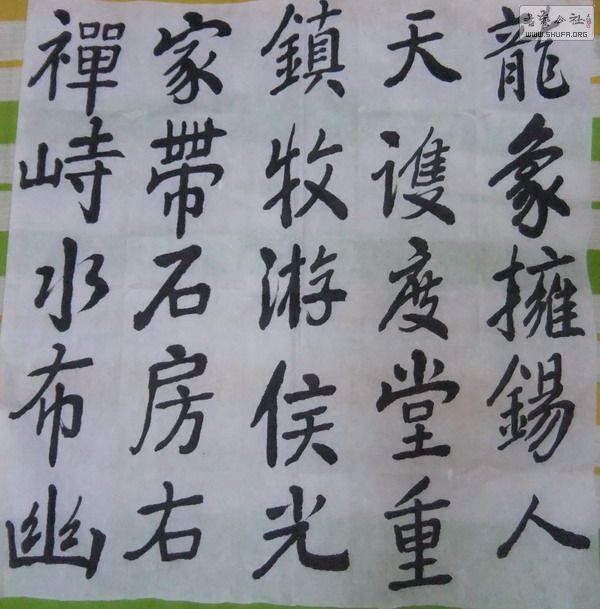 龍象擁錫人
天謢度堂重
鎮牧游侯光
家帶石房右
禪峙水布幽
书艺公社
WWW.SHUFA.ORG